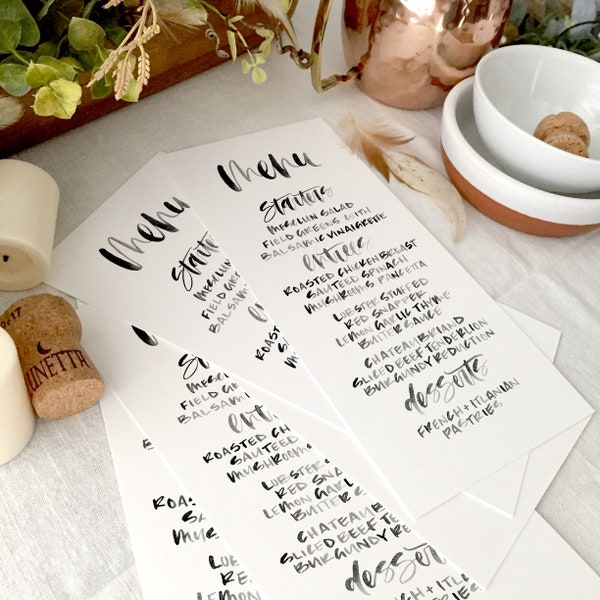 menu
Starters
MESCLUN SALAD
FIELD GREENS WITH
BALSAMIC VINAIGRETTE
entrees
ROASTED CHICKEN BREAST
SAUTEED SPINACH
MUSHROOMS PANCETTA
LOBSTER STUFFED
RED SNAPPER
LEMON GARLIC THYME
BUTTER SAUCE
CHATEAUBRIAND
SLICED BEEF TENDERLOIN
BURGUNDY REDUCTION
desserts
FRENCH + ITLANIAN
PASTRIES
menu
Starters
MESCLUN
FIELD GR
BALSAMIC
ent
ROAST
Sta
MESCLUN
FIELD GREE
BALSAMIC
entr
ROASTED CH
SAUTEED
MUSHROOMS
LOBSTER
RED SNAP
LEMON GARL
BUTTER S
CHATEAUB
SLICED BEEF TE
BURGUNDY RE
desserts
FRENCH + ITLA
PASTRI
ROAS
SA
MUSH
LOBST
RED
LEMON
2017
LUNETTA